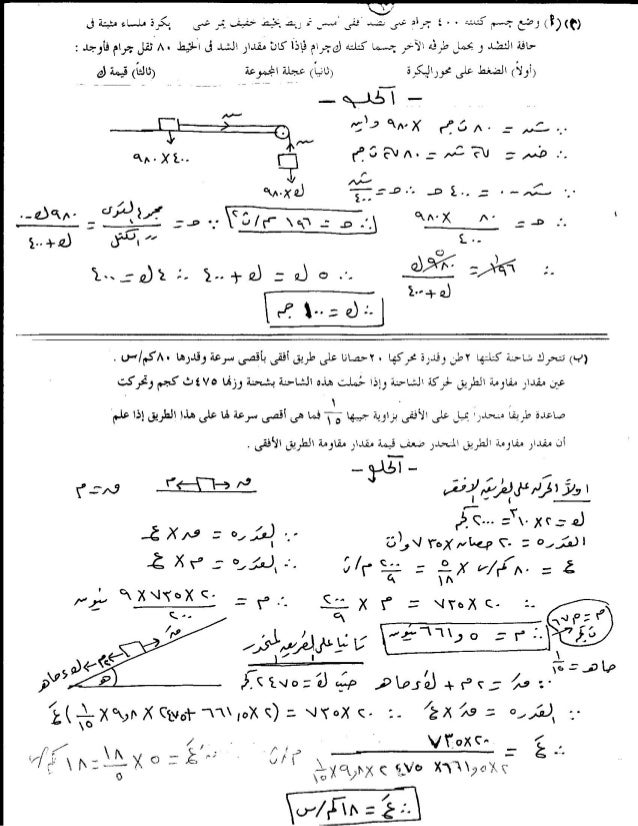 (أ) وضع جسم كتلته ٤٠٠ جرام على نضد أفقى أملس ثم ربط بخيط خفيف يمر على بكرة ملساء مثبتة فى
حافة النضد و يحمل طرفه الآخر جسما كتلته ك جرام فإذا كان مقدار الشد فى الخيط ٨٠ ثقل جرام فأوجد :
(أولاً) الضغط على محور البكرة (ثانياً) عجلة المجموعة (ثالثاً) قيمة ك
- الحلـ -
∵ شـ = ٨٠ ث جم × ٩٨٠ داين
ضـ = √٢ شـ = ٨٠√٢ ث جم
٩٨٠×٤٠٠
٩٨٠×ك
∵ شـ - ٠ = ٤٠٠ حـ ∴ حـ = شـ/٤٠٠
∴ حـ = ٨٠ × ٩٨٠ / ٤٠٠ ∴ حـ = ١٩٦ سم/ث² ∵ حـ = مجموع القوى / الكتل = ٩٨٠ك - ٠ / ك + ٤٠٠
∴ ١٩٦ = ٩٨٠ك / ك + ٤٠٠ ∴ ٥ ك = ك + ٤٠٠ ∴ ٤ ك = ٤٠٠
∴ ك = ١٠٠ جم
(ب) تتحرك شاحنة كتلتها ٢ طن وقدرة محركها ٢٠ حصانا على طريق أفقى بأقصى سرعة وقدرها ٨٠ كم/س .
عين مقدار مقاومة الطريق لحركة الشاحنة وإذا حُملت هذه الشاحنة بشحنة وزنها ٤٧٥ ث كجم وتحركت
صاعدة طريقاً منحدراً يميل على الأفقى بزاوية جيبها ١/١٥ فما هى أقصى سرعة لها على هذا الطريق إذا علم
أن مقدار مقاومة الطريق المنحدر ضعف قيمة مقاومة الطريق الأفقى .
- الحلـ -
أولاً الحركة على الطريق الأفقى
م و
و = م
ك = ٢ × ١٠³ = ٢٠٠٠ كجم
القدرة = ٢٠ حصان × ٧٣٥ وات
∵ القدرة = و × ع
ع = ٨٠ كم/س × ٥/١٨ = ٢٠٠/٩ م/ث
∴ القدرة = م × ع
∴ ٢٠ × ٧٣٥ = م × ٢٠٠/٩ ∴ م = ٢٠ × ٧٣٥ × ٩ / ٢٠٠ نيوتن
∴ م = ٦٦١,٥ نيوتن
ثانياً على الطريق المنحدر
حا هـ = ١/١٥
∵ و = ٢م + ك د حا هـ حيث ك = ٢٤٧٥ كجم
∵ القدرة = و × ع ∴ ٢٠ × ٧٣٥ = (٢ × ٦٦١,٥ + ٢٤٧٥ × ٩,٨ × ١/١٥) ع
∴ ع = ٢٠ × ٧٣٥ / ٢ × ٦٦١,٥ × ٢٤٧٥ × ٩,٨ × ١/١٥ م/ث ع = ٥ × ١٨/٥ = ١٨ كم/س
∴ ع = ١٨ كم/س